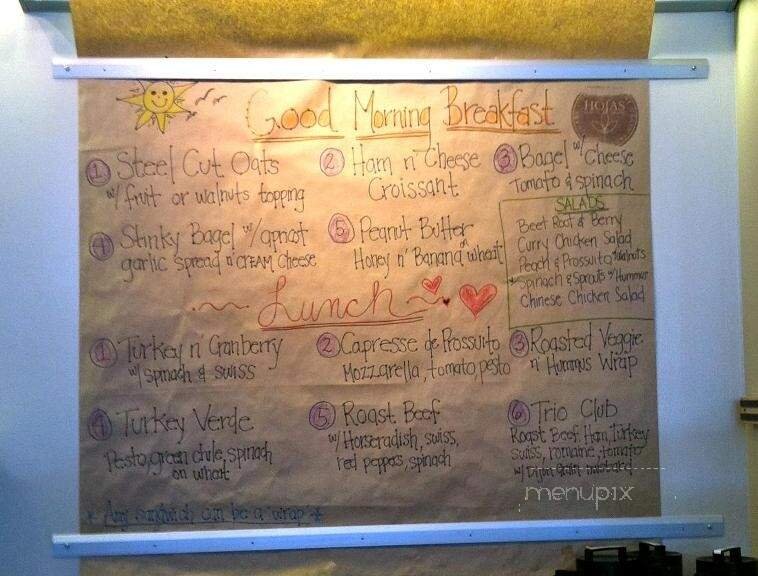 Good Morning Breakfast
HOJAS
1 Steel Cut Oats
w/ fruit or walnuts topping
2 Ham n' Cheese
Croissant
3 Bagel w/ Cheese
Tomato & spinach
4 Stinky Bagel w/ apricot
garlic spread n' cream cheese
5 Peanut Butter
Honey n' Banana on wheat
SALADS
Beet Root & Berry
Curry Chicken Salad
Peach & Prossuito walnuts
Spinach & Sprouts w/ Hummus
Chinese Chicken Salad
Lunch
1 Turkey n' Cranberry
w/ spinach & swiss
2 Capresse de Prossuito
Mozzarella, tomato, pesto
3 Roasted Veggie
n' Hummus Wrap
4 Turkey Verde
Pesto, green chile, spinach
on wheat
5 Roast Beef
w/ Horseradish, swiss,
red peppers, spinach
6 Trio Club
Roast Beef, Ham, Turkey
swiss, romaine, tomato
w/ Dijon grain mustard
* Any sandwich can be a wrap *
menupix